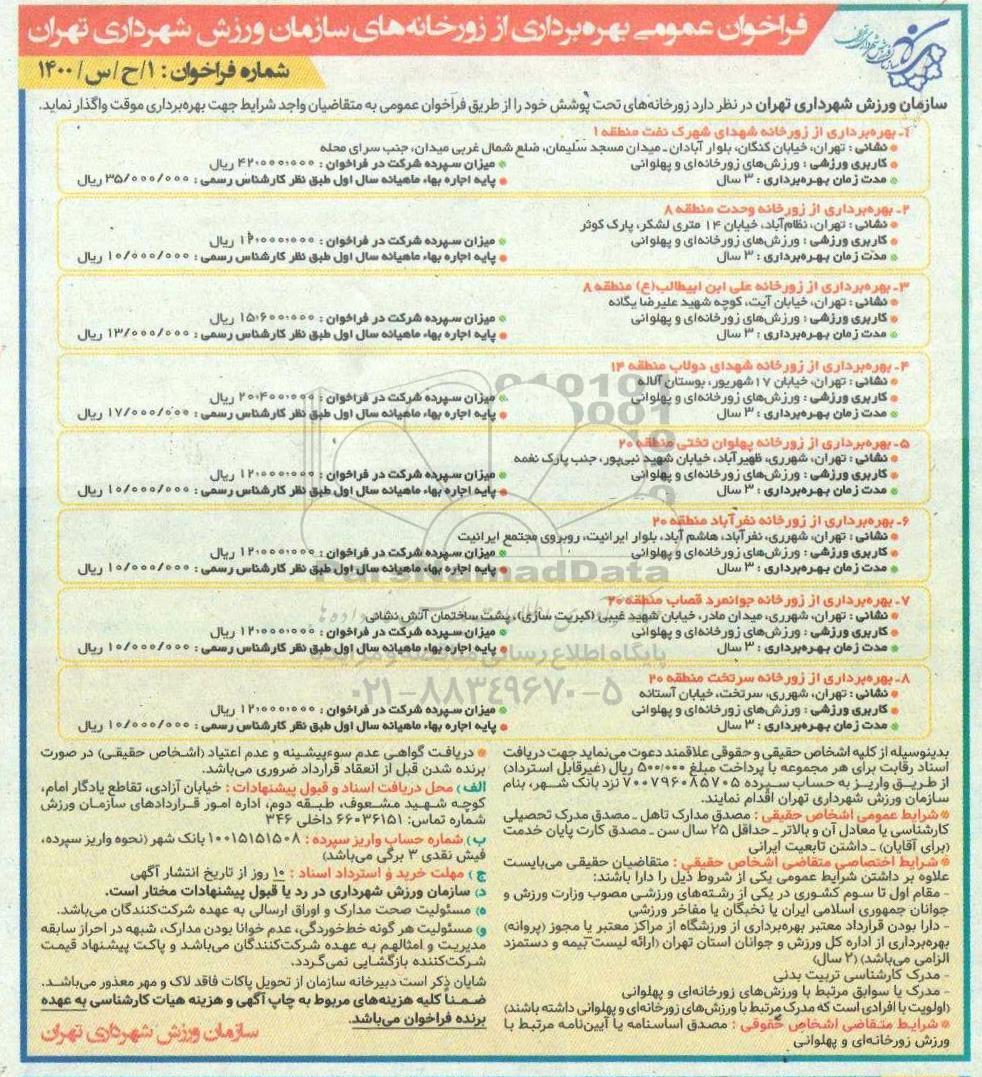 فراخوان عمومی بهره‌برداری از زورخانه‌های سازمان ورزش شهرداری تهران
شماره فراخوان: ۱/ح/س/۱۴۰۰
سازمان ورزش شهرداری تهران در نظر دارد زورخانه‌های تحت پوشش خود را از طریق فراخوان عمومی به متقاضیان واجد شرایط جهت بهره‌برداری موقت واگذار نماید.
۱ـ بهره‌برداری از زورخانه شهدای شهرک نفت منطقه ۱
نشانی: تهران، خیابان کنگان، بلوار آبادان ـ میدان مسجد سلیمان، ضلع شمال غربی میدان، جنب سرای محله
کاربری ورزشی: ورزش‌های زورخانه‌ای و پهلوانی
میزان سپرده شرکت در فراخوان: ۴۲۰۰۰۰۰۰۰ ریال
مدت زمان بهره‌برداری: ۳ سال
پایه اجاره بهاء ماهیانه سال اول طبق نظر کارشناس رسمی: ۳۵/۰۰۰/۰۰۰ ریال
۲ـ بهره‌برداری از زورخانه وحدت منطقه ۸
نشانی: تهران، نظام‌آباد، خیابان ۱۴ متری لشکر، پارک کوثر
کاربری ورزشی: ورزش‌های زورخانه‌ای و پهلوانی
میزان سپرده شرکت در فراخوان: ۱۲۰۰۰۰۰۰۰ ریال
مدت زمان بهره‌برداری: ۳ سال
پایه اجاره بهاء ماهیانه سال اول طبق نظر کارشناس رسمی: ۱۰/۰۰۰/۰۰۰ ریال
۳ـ بهره‌برداری از زورخانه علی ابن ابیطالب(ع) منطقه ۸
نشانی: تهران، خیابان آیت، کوچه شهید علیرضا یگانه
کاربری ورزشی: ورزش‌های زورخانه‌ای و پهلوانی
میزان سپرده شرکت در فراخوان: ۱۵۰۶۰۰۰۰۰۰ ریال
مدت زمان بهره‌برداری: ۳ سال
پایه اجاره بهاء ماهیانه سال اول طبق نظر کارشناس رسمی: ۱۳/۰۰۰/۰۰۰ ریال
۴ـ بهره‌برداری از زورخانه شهدای دولاب منطقه ۱۴
نشانی: تهران، خیابان ۱۷ شهریور، بوستان آلاله
کاربری ورزشی: ورزش‌های زورخانه‌ای و پهلوانی
میزان سپرده شرکت در فراخوان: ۲۰۰۴۰۰۰۰۰۰ ریال
مدت زمان بهره‌برداری: ۳ سال
پایه اجاره بهاء ماهیانه سال اول طبق نظر کارشناس رسمی: ۱۷/۰۰۰/۰۰۰ ریال
۵ـ بهره‌برداری از زورخانه پهلوان تختی منطقه ۲۰
نشانی: تهران، شهرری، ظهیرآباد، خیابان شهید نبی‌پور، جنب پارک نغمه
کاربری ورزشی: ورزش‌های زورخانه‌ای و پهلوانی
میزان سپرده شرکت در فراخوان: ۱۲۰۰۰۰۰۰۰ ریال
مدت زمان بهره‌برداری: ۳ سال
پایه اجاره بهاء ماهیانه سال اول طبق نظر کارشناس رسمی: ۱۰/۰۰۰/۰۰۰ ریال
۶ـ بهره‌برداری از زورخانه نفرآباد منطقه ۲۰
نشانی: تهران، شهرری، نفرآباد، هاشم آباد، بلوار ایرانیت، روبروی مجتمع ایرانیت
کاربری ورزشی: ورزش‌های زورخانه‌ای و پهلوانی
میزان سپرده شرکت در فراخوان: ۱۲۰۰۰۰۰۰۰ ریال
مدت زمان بهره‌برداری: ۳ سال
پایه اجاره بهاء ماهیانه سال اول طبق نظر کارشناس رسمی: ۱۰/۰۰۰/۰۰۰ ریال
ParsNamadData
۷ـ بهره‌برداری از زورخانه جوانمرد قصاب منطقه ۲۰
نشانی: تهران، شهرری، میدان مادر، خیابان شهید غیبی (کبریت سازی)، پشت ساختمان آتش نشانی
کاربری ورزشی: ورزش‌های زورخانه‌ای و پهلوانی
میزان سپرده شرکت در فراخوان: ۱۲۰۰۰۰۰۰۰ ریال
مدت زمان بهره‌برداری: ۳ سال
پایه اجاره بهاء ماهیانه سال اول طبق نظر کارشناس رسمی: ۱۰/۰۰۰/۰۰۰ ریال
پایگاه اطلاع رسانی مناقصه و مزایده
۸ـ بهره‌برداری از زورخانه سرتخت منطقه ۲۰
نشانی: تهران، شهرری، سرتخت، خیابان آستانه
۰۲۱-۸۸۳۴۹۶۷۰-۵
کاربری ورزشی: ورزش‌های زورخانه‌ای و پهلوانی
میزان سپرده شرکت در فراخوان: ۱۲۰۰۰۰۰۰۰ ریال
مدت زمان بهره‌برداری: ۳ سال
پایه اجاره بهاء ماهیانه سال اول طبق نظر کارشناس رسمی: ۱۰/۰۰۰/۰۰۰ ریال
بدینوسیله از کلیه اشخاص حقیقی و حقوقی علاقمند دعوت می‌نماید جهت دریافت
اسناد رقابت برای هر مجموعه با پرداخت مبلغ ۵۰۰/۰۰۰ ریال (غیرقابل استرداد)
از طریق واریز به حساب سپرده ۷۰۰۷۹۶۰۸۵۷۰۵ نزد بانک شهر، بنام
سازمان ورزش شهرداری تهران اقدام نمایند.
شرایط عمومی اشخاص حقیقی: مصدق مدارک تاهل ـ مصدق مدرک تحصیلی
کارشناسی یا معادل آن و بالاتر ـ حداقل ۲۵ سال سن ـ مصدق کارت پایان خدمت
(برای آقایان) ـ داشتن تابعیت ایرانی
شرایط اختصاصی متقاضی اشخاص حقیقی: متقاضیان حقیقی می‌بایست
علاوه بر داشتن شرایط عمومی یکی از شروط ذیل را دارا باشند:
- مقام اول تا سوم کشوری در یکی از رشته‌های ورزشی مصوب وزارت ورزش و
جوانان جمهوری اسلامی ایران یا نخبگان یا مفاخر ورزشی
- دارا بودن قرارداد معتبر بهره‌برداری از ورزشگاه از مراکز معتبر یا مجوز (پروانه)
بهره‌برداری از اداره کل ورزش و جوانان استان تهران (ارائه لیست بیمه و دستمزد
الزامی می‌باشد) (۲ سال)
- مدرک کارشناسی تربیت بدنی
- مدرک یا سوابق مرتبط با ورزش‌های زورخانه‌ای و پهلوانی
(اولویت با افرادی است که مدرک مرتبط با ورزش‌های زورخانه‌ای و پهلوانی داشته باشند)
شرایط متقاضی اشخاص حقوقی: مصدق اساسنامه یا آیین‌نامه مرتبط با
ورزش زورخانه‌ای و پهلوانی
دریافت گواهی عدم سوءپیشینه و عدم اعتیاد (اشخاص حقیقی) در صورت
برنده شدن قبل از انعقاد قرارداد ضروری می‌باشد.
الف) محل دریافت اسناد و قبول پیشنهادات: خیابان آزادی، تقاطع یادگار امام،
کوچه شهید مشعوف، طبقه دوم، اداره امور قراردادهای سازمان ورزش
شماره تماس: ۶۶۰۳۶۱۵۱ داخلی ۳۴۶
ب) شماره حساب واریز سپرده: ۱۰۰۱۵۱۵۱۵۰۸ بانک شهر (نحوه واریز سپرده،
فیش نقدی ۳ برگی می‌باشد)
ج) مهلت خرید و استرداد اسناد: ۱۰ روز از تاریخ انتشار آگهی
د) سازمان ورزش شهرداری در رد یا قبول پیشنهادات مختار است.
ه) مسئولیت صحت مدارک و اوراق ارسالی به عهده شرکت‌کنندگان می‌باشد.
و) مسئولیت هر گونه خط‌خوردگی، عدم خوانا بودن مدارک، شبهه در احراز سابقه
مدیریت و امثالهم به عهده شرکت‌کنندگان می‌باشد و پاکت پیشنهاد قیمت
شرکت‌کننده بازگشایی نمی‌گردد.
شایان ذکر است دبیرخانه سازمان از تحویل پاکات فاقد لاک و مهر معذور می‌باشد.
ضمناً کلیه هزینه‌های مربوط به چاپ آگهی و هزینه هیات کارشناسی به عهده
برنده فراخوان می‌باشد.
سازمان ورزش شهرداری تهران